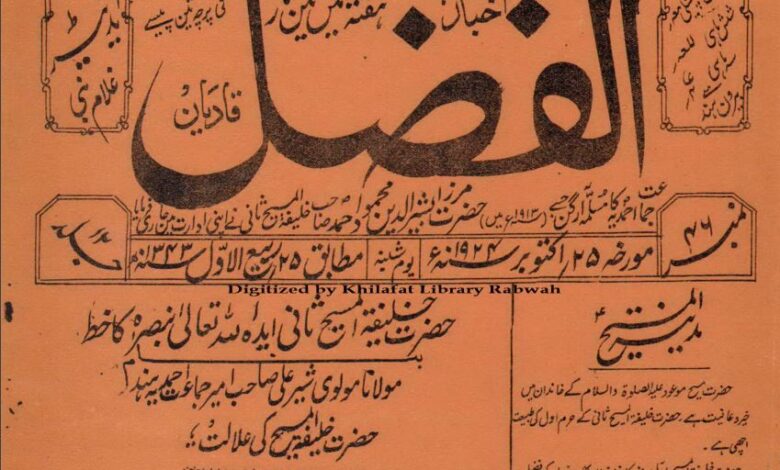 ایڈیٹر
غلام نبی
اخبار
ہفتہ میں تین بار
فی پرچہ تین پیسے
الفضل
قادیان
ششماہی للعہ
سہ ماہی عہ
بیرون ہند
جماعت احمدیہ کا مسلمہ آرگن جسے (۱۹۱۳ء میں) حضرت مرزا بشیر الدین محمود احمد صاحب خلیفۃ المسیح ثانی نے اپنی ادارت میں جاری فرمایا
نمبر ۴۶
مورخہ ۲۵/ اکتوبر ۱۹۲۴ء یوم شنبہ مطابق ۲۵ ربیع الاول ۱۳۴۳ھ
جلد
Digitized by Khilafat Library Rabwah
المسیح
مدینۃ
حضرت مسیح موعود علیہ الصلوۃ والسلام کے خاندان میں
خیر و عافیت ہے۔ حضرت خلیفۃ المسیح ثانی کے حرم اول کی طبیعت
اچھی ہے۔
حضرت خلیفۃ المسیح ثانی ایدہ اللہ تعالیٰ بنصرہ کا خط
بنام
مولانا مولوی شیر علی صاحب امیر جماعت احمدیہ ہند
حضرت خلیفۃ المسیح کی علالت